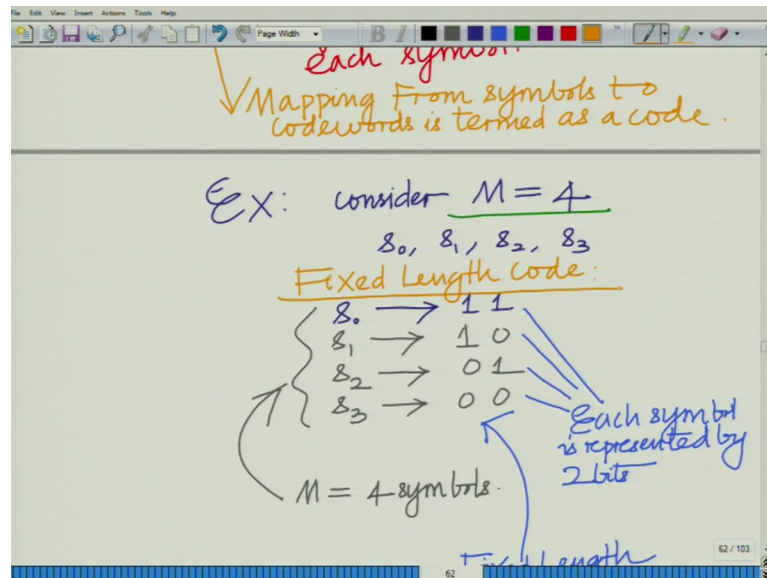 File Edit View Insert Actions Tools Help
Page Width
B I
each symbol.
Mapping From symbols to
codewords is termed as a code.
Ex: consider M = 4
s₀, s₁, s₂, s₃
Fixed Length Code:
s₀ → 1 1
s₁ → 1 0
s₂ → 0 1
s₃ → 0 0
Each symbol
is represented by
2 bits
M = 4 symbols.
Fixed Length
62 / 103
62